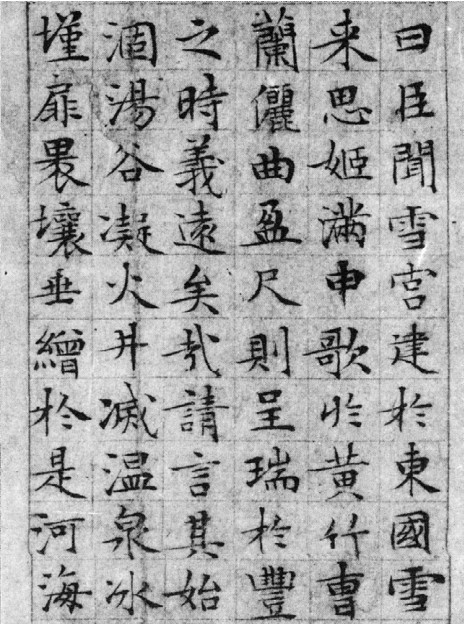 曰臣聞雪宮建於東國雪
来思姬滿申歌於黃竹曹
蘭儷曲盈尺則呈瑞於豐
之時義遠矣哉請言其始
涸湯谷凝火井滅温泉冰
墐扉褁壤垂繒於是河海